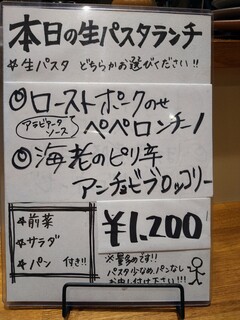 本日の生パスタランチ
☆生パスタ どちらかお選びください!!
◎ローストポークのせ
アラビアータソース ペペロンチーノ
◎海老のピリ辛
アンチョビブロッコリー
☆前菜
☆サラダ
☆パン 付き!!
¥1,200
※量多めです!!
パスタ少なめ、パンなし
お申し付け下さい!!!